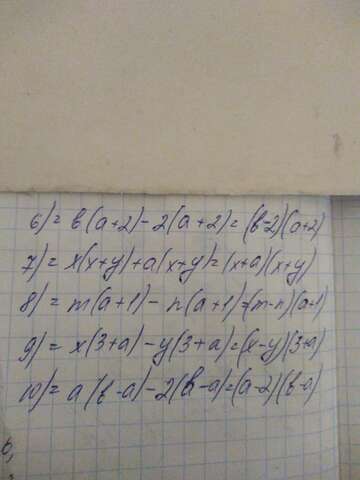 6) = в(a+2)-2(a+2)=(в-2)(a+2)
7) = x(x+y)+a(x+y)=(x+a)(x+y)
8) = m(a+1)-n(a+1)=(m-n)(a+1)
9) = x(3+a)-y(3+a)=(x-y)(3+a)
10) = a(в-a)-2(в-a)=(a-2)(в-a)